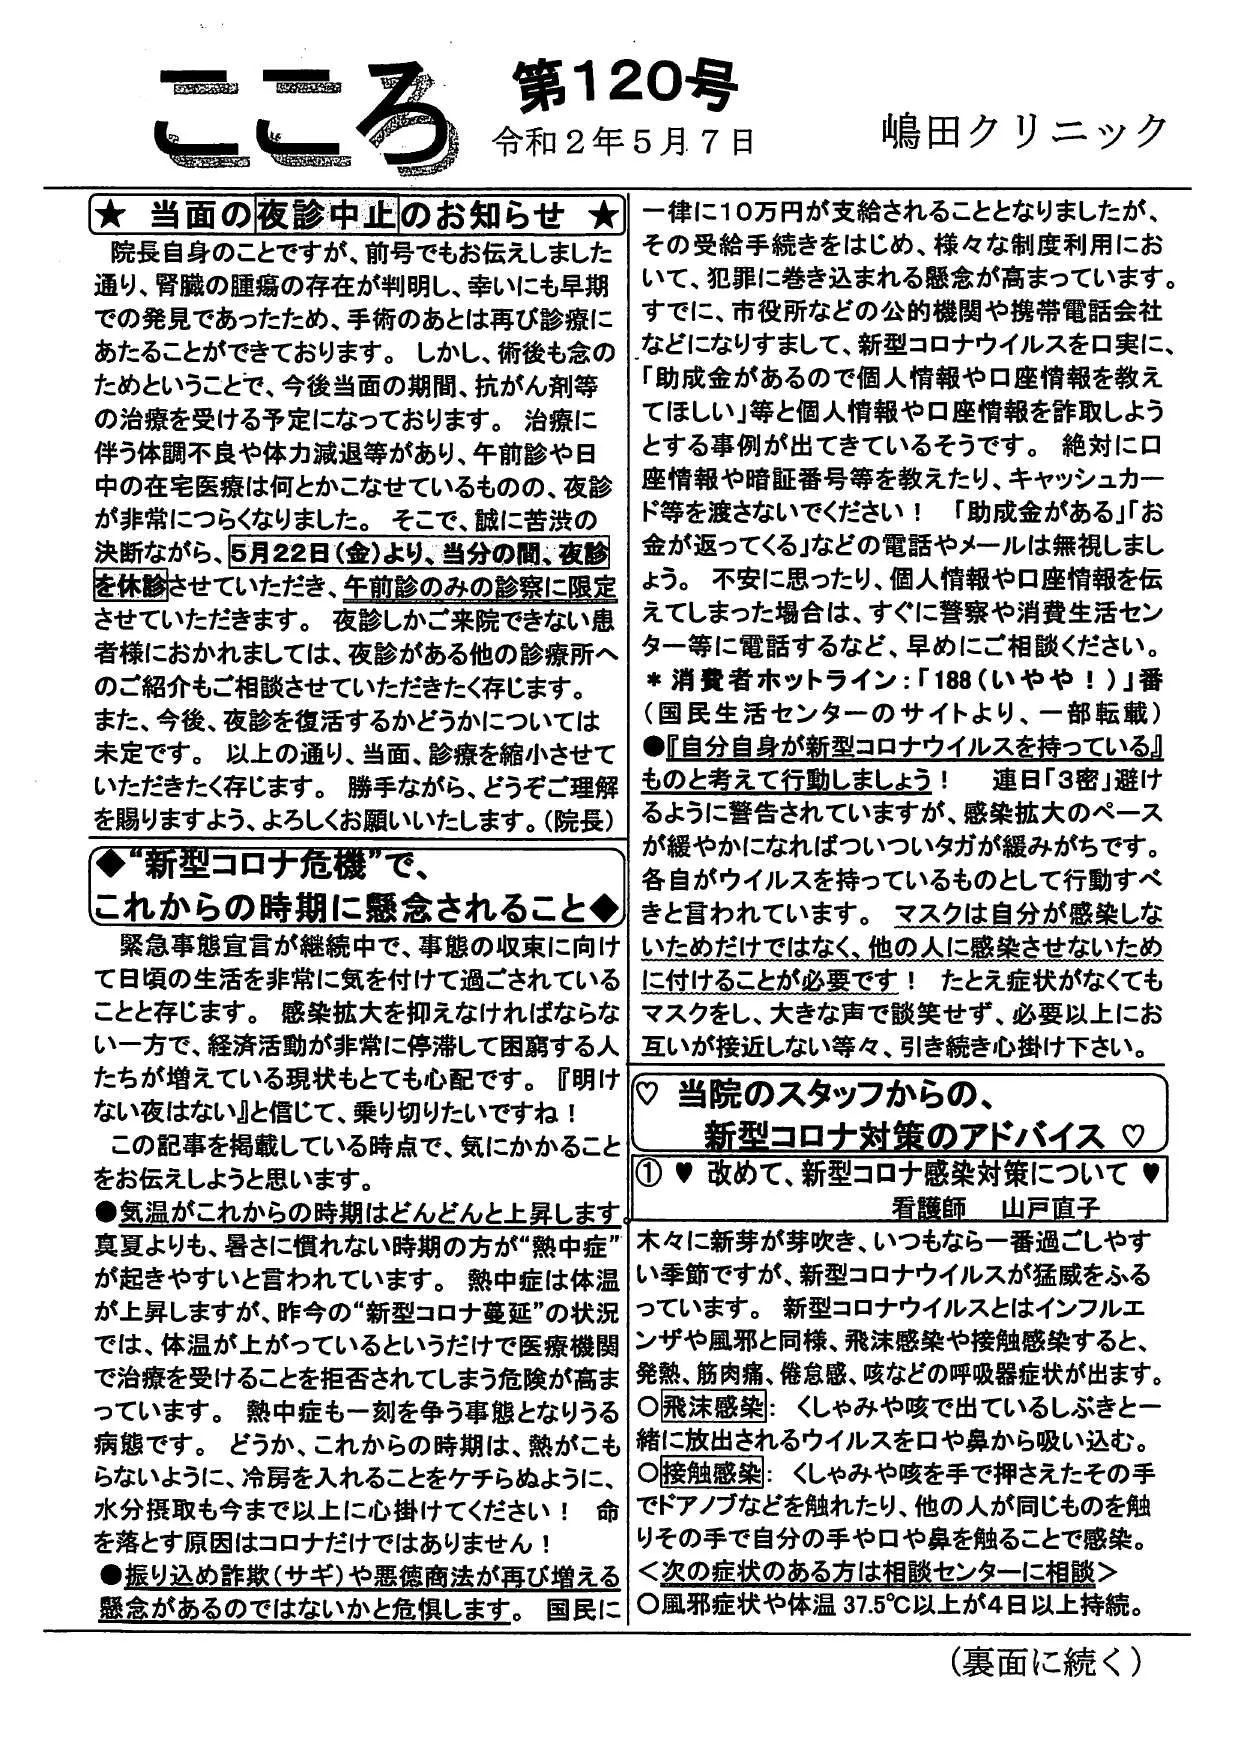 こころ
第120号
令和2年5月7日
嶋田クリニック
★ 当面の夜診中止のお知らせ ★
院長自身のことですが、前号でもお伝えしました
通り、腎臓の腫瘍の存在が判明し、幸いにも早期
での発見であったため、手術のあとは再び診療に
あたることができております。 しかし、術後も念の
ためということで、今後当面の期間、抗がん剤等
の治療を受ける予定になっております。 治療に
伴う体調不良や体力減退等があり、午前診や日
中の在宅医療は何とかこなせているものの、夜診
が非常につらくなりました。 そこで、誠に苦渋の
決断ながら、5月22日(金)より、当分の間、夜診
を休診させていただき、午前診のみの診察に限定
させていただきます。 夜診しかご来院できない患
者様におかれましては、夜診がある他の診療所へ
のご紹介もご相談させていただきたく存じます。
また、今後、夜診を復活するかどうかについては
未定です。 以上の通り、当面、診療を縮小させて
いただきたく存じます。 勝手ながら、どうぞご理解
を賜りますよう、よろしくお願いいたします。(院長)
◆“新型コロナ危機”で、
これからの時期に懸念されること◆
緊急事態宣言が継続中で、事態の収束に向け
て日頃の生活を非常に気を付けて過ごされている
ことと存じます。 感染拡大を抑えなければならな
い一方で、経済活動が非常に停滞して困窮する人
たちが増えている現状もとても心配です。『明け
ない夜はない』と信じて、乗り切りたいですね!
この記事を掲載している時点で、気にかかること
をお伝えしようと思います。
●気温がこれからの時期はどんどんと上昇します。
真夏よりも、暑さに慣れない時期の方が“熱中症”
が起きやすいと言われています。 熱中症は体温
が上昇しますが、昨今の“新型コロナ蔓延”の状況
では、体温が上がっているというだけで医療機関
で治療を受けることを拒否されてしまう危険が高ま
っています。 熱中症も一刻を争う事態となりうる
病態です。 どうか、これからの時期は、熱がこも
らないように、冷房を入れることをケチらぬように、
水分摂取も今まで以上に心掛けてください! 命
を落とす原因はコロナだけではありません!
●振り込め詐欺(サギ)や悪徳商法が再び増える
懸念があるのではないかと危惧します。 国民に
一律に10万円が支給されることとなりましたが、
その受給手続きをはじめ、様々な制度利用にお
いて、犯罪に巻き込まれる懸念が高まっています。
すでに、市役所などの公的機関や携帯電話会社
などになりすまして、新型コロナウイルスを口実に、
「助成金があるので個人情報や口座情報を教え
てほしい」等と個人情報や口座情報を詐取しよう
とする事例が出てきているそうです。 絶対に口
座情報や暗証番号等を教えたり、キャッシュカー
ド等を渡さないでください! 「助成金がある」「お
金が返ってくる」などの電話やメールは無視しまし
ょう。 不安に思ったり、個人情報や口座情報を伝
えてしまった場合は、すぐに警察や消費生活セン
ター等に電話するなど、早めにご相談ください。
*消費者ホットライン:「188(いやや!)」番
(国民生活センターのサイトより、一部転載)
●『自分自身が新型コロナウイルスを持っている』
ものと考えて行動しましょう! 連日「3密」避け
るように警告されていますが、感染拡大のペース
が緩やかになればついついタガが緩みがちです。
各自がウイルスを持っているものとして行動すべ
きと言われています。 マスクは自分が感染しな
いためだけではなく、他の人に感染させないため
に付けることが必要です! たとえ症状がなくても
マスクをし、大きな声で談笑せず、必要以上にお
互いが接近しない等々、引き続き心掛け下さい。
♡ 当院のスタッフからの、
新型コロナ対策のアドバイス ♡
① ♥ 改めて、新型コロナ感染対策について ♥
看護師 山戸直子
木々に新芽が芽吹き、いつもなら一番過ごしやす
い季節ですが、新型コロナウイルスが猛威をふる
っています。 新型コロナウイルスとはインフルエ
ンザや風邪と同様、飛沫感染や接触感染すると、
発熱、筋肉痛、倦怠感、咳などの呼吸器症状が出ます。
○飛沫感染: くしゃみや咳で出ているしぶきと一
緒に放出されるウイルスを口や鼻から吸い込む。
○接触感染: くしゃみや咳を手で押さえたその手
でドアノブなどを触れたり、他の人が同じものを触
りその手で自分の手や口や鼻を触ることで感染。
<次の症状のある方は相談センターに相談>
○風邪症状や体温37.5℃以上が4日以上持続。
(裏面に続く)